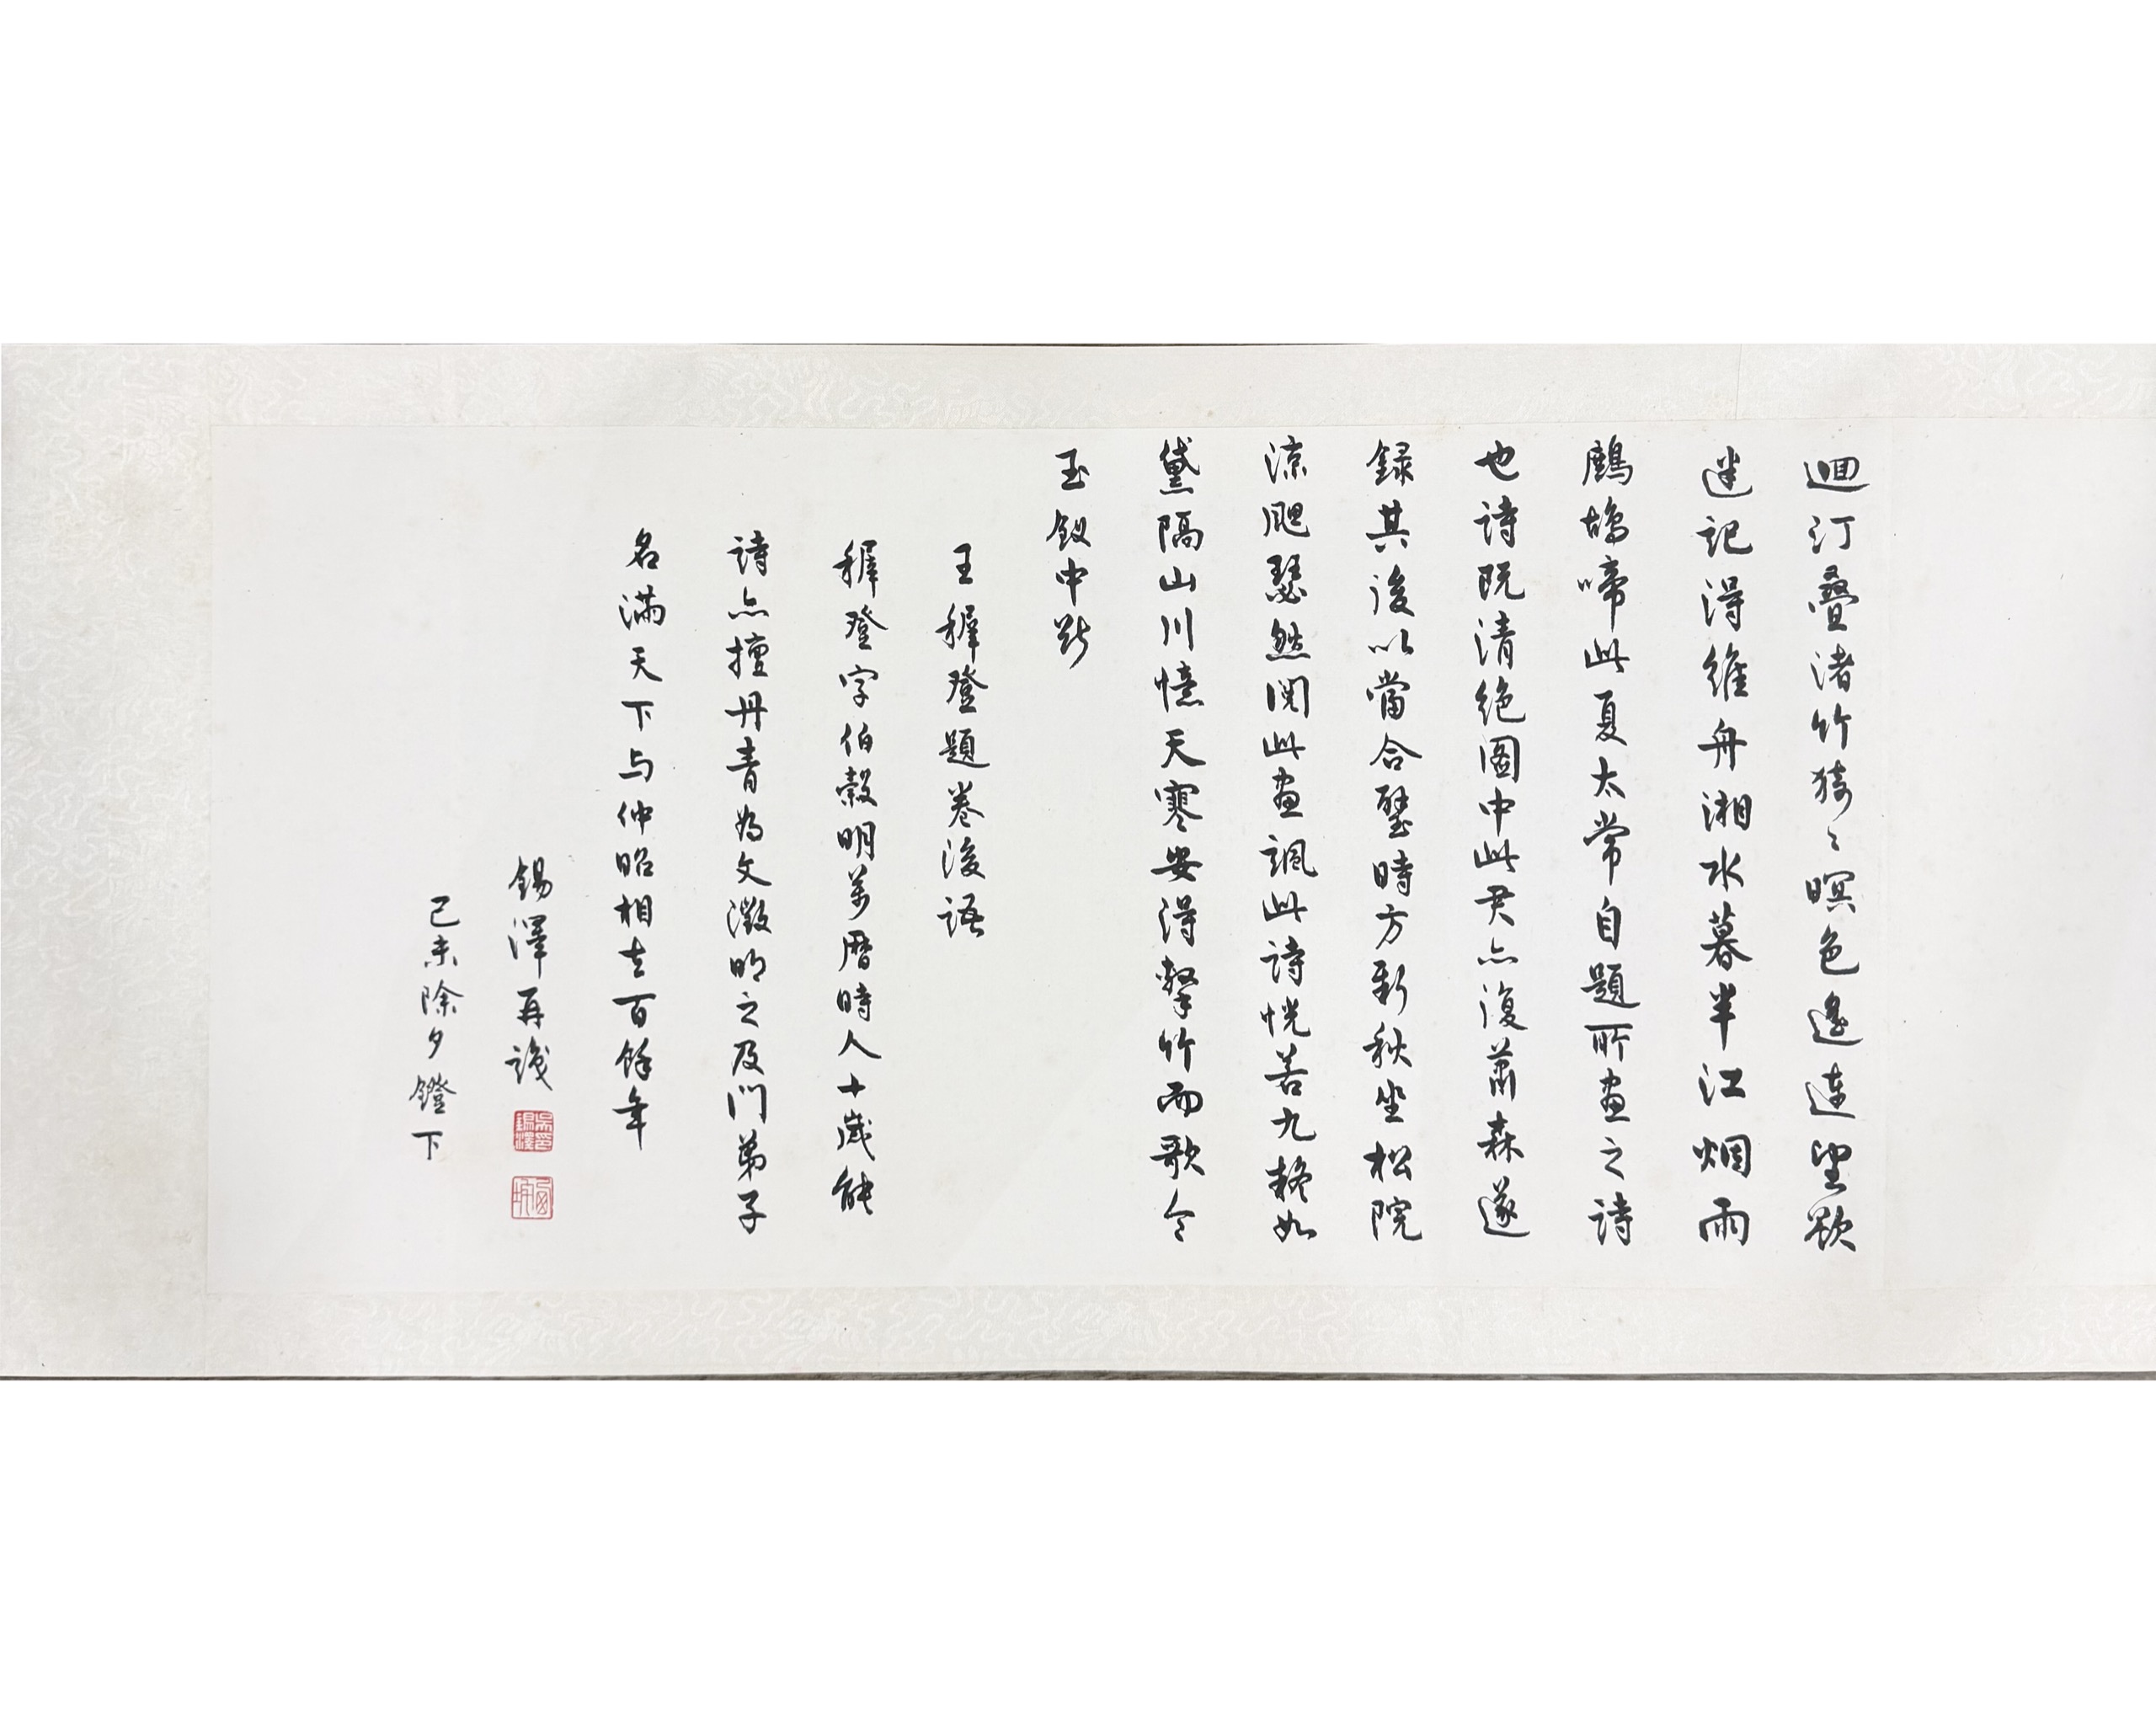 迴汀疊渚竹猗〻暝色遙連望欲
迷記得維舟湘水暮半江烟雨
鷓鴣啼此夏太常自題所畫之詩
也詩既清絶圖中此君亦復蕭森遂
録其後以當合璧時方新秋坐松院
涼颸瑟然閲此畫諷此詩恍若九嶷如
黛隔山川憶天寒安得擊竹而歌令
玉釵中斷
王穉登題卷後語
穉登字伯縠明萬曆時人十歲能
詩亦擅丹青為文徵明之及門弟子
名滿天下与仲昭相去百餘年
錫澤再識
己未除夕鐙下